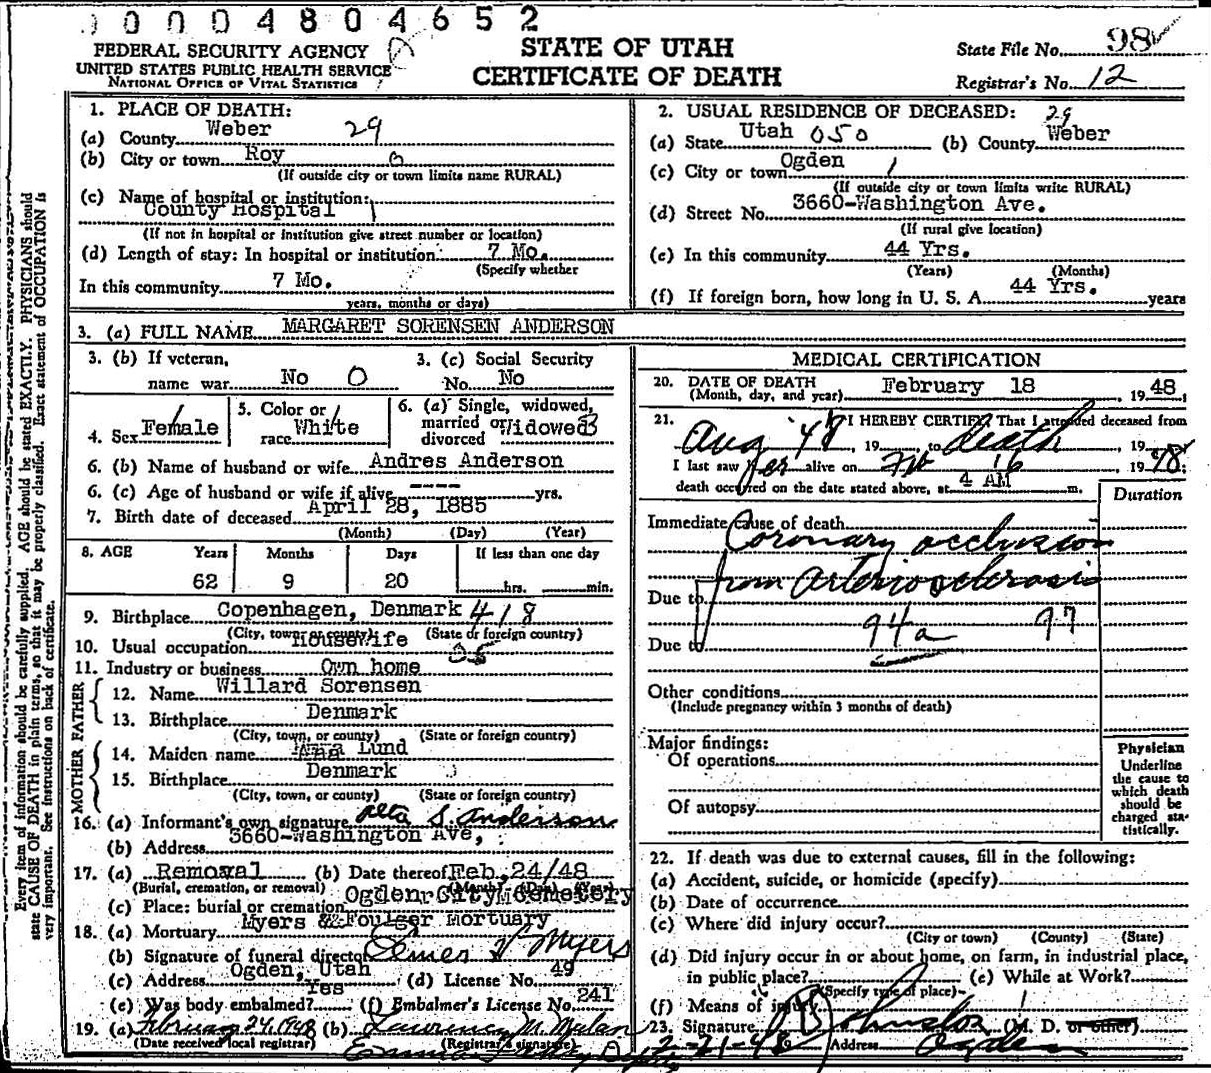 00004804652
FEDERAL SECURITY AGENCY
UNITED STATES PUBLIC HEALTH SERVICE
NATIONAL OFFICE OF VITAL STATISTICS
STATE OF UTAH
CERTIFICATE OF DEATH
State File No. 98
Registrar's No. 12
1. PLACE OF DEATH:
(a) County Weber 29
(b) City or town Roy 0
(If outside city or town limits name RURAL)
(c) Name of hospital or institution:
County Hospital 1
(If not in hospital or institution give street number or location)
(d) Length of stay: In hospital or institution 7 Mo.
(Specify whether
In this community 7 Mo.
years, months or days)
2. USUAL RESIDENCE OF DECEASED: 29
(a) State Utah 050 (b) County Weber
(c) City or town Ogden 1
(If outside city or town limits write RURAL)
(d) Street No. 3660-Washington Ave.
(If rural give location)
(e) In this community 44 Yrs.
(Years) (Months)
(f) If foreign born, how long in U. S. A. 44 Yrs. years
3. (a) FULL NAME MARGARET SORENSEN ANDERSON
3. (b) If veteran,
name war No 0
3. (c) Social Security
No. No
4. Sex Female
5. Color or
race White
6. (a) Single, widowed,
married or
divorced Widowed 3
6. (b) Name of husband or wife Andres Anderson
6. (c) Age of husband or wife if alive ---- yrs.
7. Birth date of deceased April 28, 1885
(Month) (Day) (Year)
8. AGE Years Months Days If less than one day
62 9 20 hrs. min.
9. Birthplace Copenhagen, Denmark 418
(City, town or county) (State or foreign country)
10. Usual occupation Housewife
11. Industry or business Own home
FATHER
12. Name Willard Sorensen
13. Birthplace Denmark
(City, town, or county) (State or foreign country)
MOTHER
14. Maiden name Lund
15. Birthplace Denmark
(City, town, or county) (State or foreign country)
16. (a) Informant's own signature Alta S. Anderson
(b) Address 3660-Washington Ave,
17. (a) Removal (b) Date thereof Feb. 24/48
(Burial, cremation, or removal) (Month) (Day) (Year)
(c) Place: burial or cremation Ogden City Cemetery
18. (a) Mortuary Myers & Foulger Mortuary
(b) Signature of funeral director Elmer V Myers
(c) Address Ogden, Utah (d) License No. 49
(e) Was body embalmed? Yes (f) Embalmer's License No. 241
19. (a) February 24, 1948 (b) Lawrence M. Malan
(Date received local registrar) (Registrar's signature)
MEDICAL CERTIFICATION
20. DATE OF DEATH
(Month, day, and year) February 18, 1948
21. I HEREBY CERTIFY That I attended deceased from
Aug '47, 19 to death 19
I last saw her alive on Feb 16 1948;
death occurred on the date stated above, at 4 AM m.
Duration
Immediate cause of death
Coronary occlusion
from arteriosclerosis
Due to
Due to 94a 97
Other conditions
(Include pregnancy within 3 months of death)
Major findings:
Of operations
Of autopsy
Physician
Underline
the cause to
which death
should be
charged sta-
tistically.
22. If death was due to external causes, fill in the following:
(a) Accident, suicide, or homicide (specify)
(b) Date of occurrence
(c) Where did injury occur?
(City or town) (County) (State)
(d) Did injury occur in or about home, on farm, in industrial place,
in public place? (e) While at Work?
(Specify type of place)
(f) Means of injury
23. Signature (M. D. or other)
2-21-48 Address Ogden
Every item of information should be carefully supplied. AGE should be stated EXACTLY. PHYSICIANS should
state CAUSE OF DEATH in plain terms, so that it may be properly classified. Exact statement of OCCUPATION is
very important. See instructions on back of certificate.